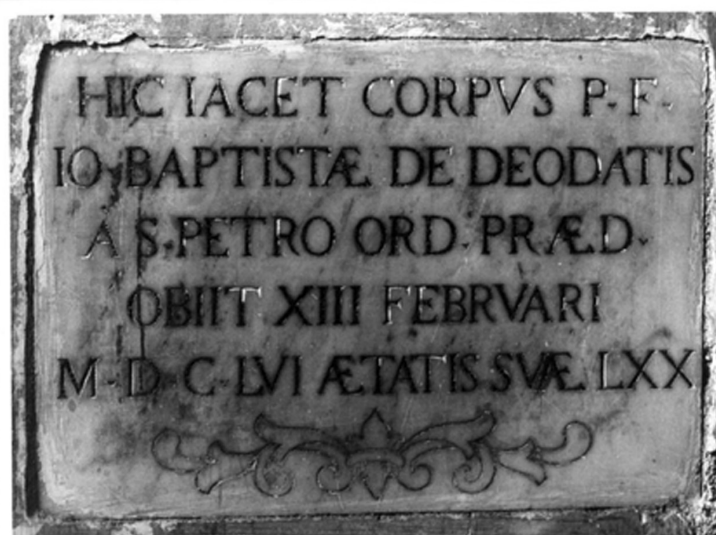 HIC IACET CORPVS P. F.
IO. BAPTISTÆ DE DEODATIS
A S. PETRO ORD. PRÆD.
OBIIT XIII FEBRVARI
M. D. C. LVI ÆTATIS SVÆ LXX